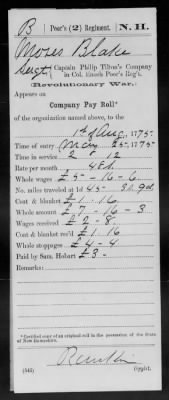 B | Poor's (2) Regiment. | N. H.
Moses Blake
Sergt, Captain Philip Tilton's Company
in Col. Enoch Poor's Reg't.
Revolutionary War.
Appears on
Company Pay Roll*
of the organization named above, to the
1st of Aug, 1775.
Time of entry May 25, 1775.
Time in service 2 " 12
Rate per month 48/
Whole wages £5 - 16 - 6
No. miles traveled at 1d 45 - 3s. 9d
Coat & blanket £1.16
Whole amount £7 - 16 - 3
Wages received £2 - 8 -
Coat & blanket rec'd £1.16
Whole stoppages £4 - 4
Paid by Sam. Hobart £3 -
Remarks:
*Certified copy of original roll in the possession of the State
of New Hampshire.
(545) Copyist.